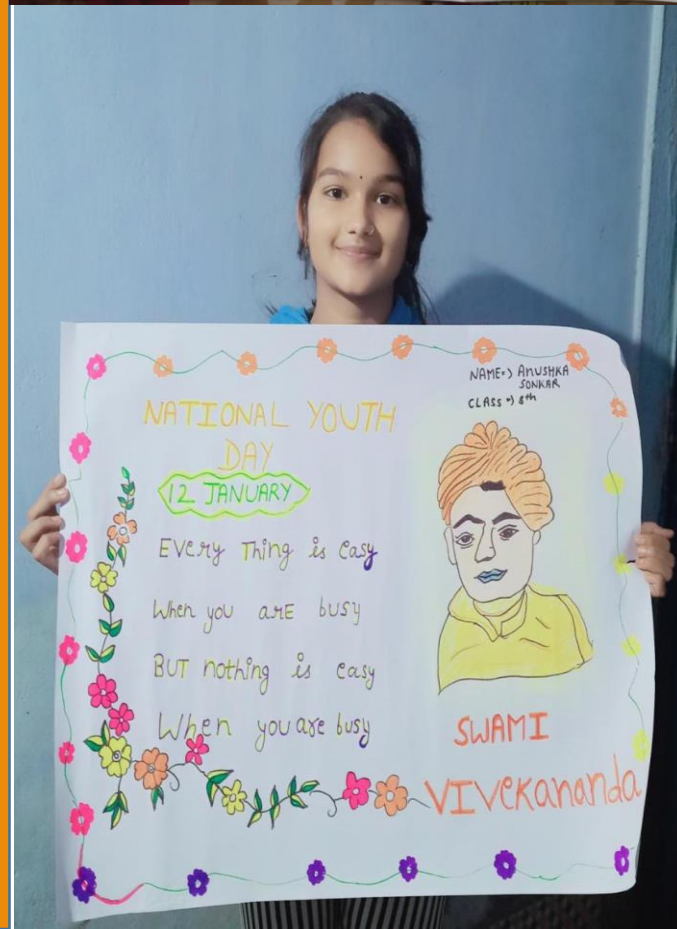 NAME=) ANUSHKA
SONKAR
CLASS =) 8th
NATIONAL YOUTH
DAY
12 JANUARY
EVERy Thing is easy
When you arE busy
BUT nothing is easy
When you are busy
SWAMI
VIVekananda